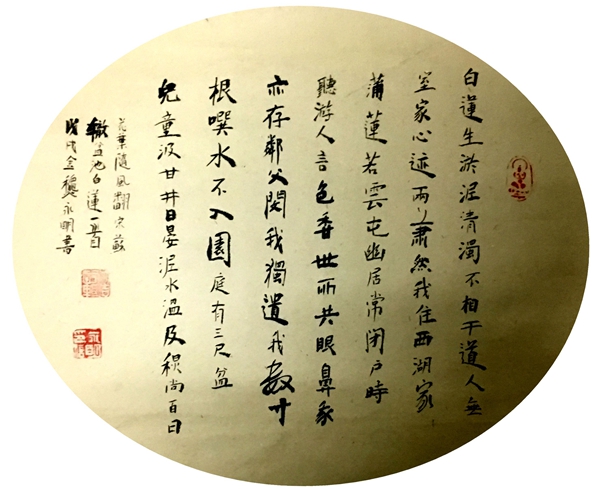 白蓮生淤泥清濁不相干道人無
室家心迹兩蕭然我住西湖家
蒲蓮若雲屯幽居常閉户時
聽游人言色香世所共眼鼻
亦存鄰父閔我獨遺我數寸
根噀水不入園庭有三尺盆
兒童汲甘井日晏泥水温及秋尚百日
花葉隨風翻宋蘇
轍盆池白蓮一
戊戌金穗永明書